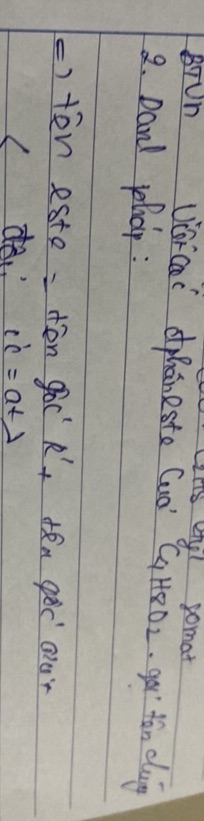 etyl fomat
BTVN Viết các đphân este của C4H8O2. gọi tên chúng
2. Danh pháp:
=> tên este = tên gốc R' + tên gốc axit
(đổi ic = at)